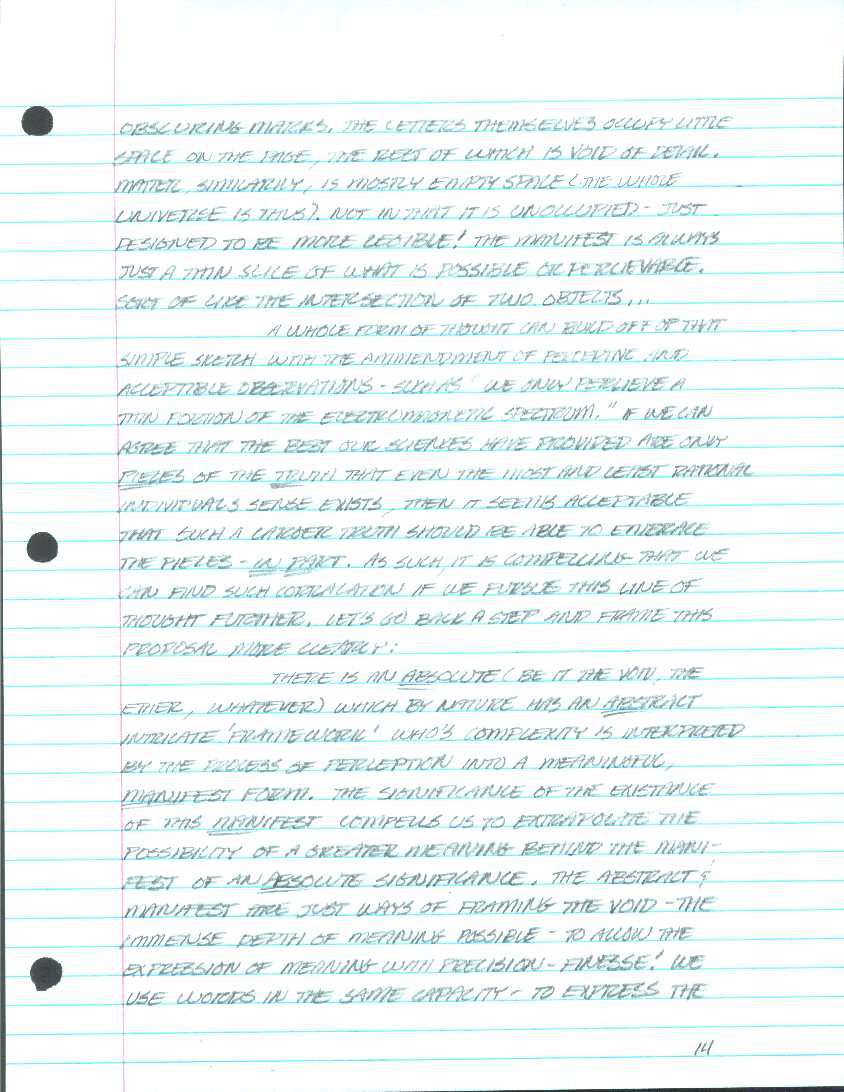 OBSCURING MARKS. THE LETTERS THEMSELVES OCCUPY LITTLE
SPACE ON THE PAGE, THE REST OF WHICH IS VOID OF DETAIL.
MATTER, SIMILARILY, IS MOSTLY EMPTY SPACE (THE WHOLE
UNIVERSE IS THUS). NOT IN THAT IT IS UNOCCUPIED - JUST
DESIGNED TO BE MORE LEGIBLE! THE MANIFEST IS ALWAYS
JUST A THIN SLICE OF WHAT IS POSSIBLE OR PERCIEVABLE.
SORT OF LIKE THE INTERSECTION OF TWO OBJECTS...
A WHOLE FORM OF THOUGHT CAN BUILD OFF OF THAT
SIMPLE SKETCH WITH THE AMMENDMENT OF PERCEPTIVE AND
ACCEPTIBLE OBSERVATIONS - SUCH AS "WE ONLY PERCIEVE A
THIN PORTION OF THE ELECTROMAGNETIC SPECTRUM." IF WE CAN
AGREE THAT THE BEST OUR SCIENCES HAVE PROVIDED ARE ONLY
PIECES OF THE TRUTH THAT EVEN THE MOST AND LEAST RATIONAL
INDIVIDUALS SENSE EXISTS, THEN IT SEEMS ACCEPTABLE
THAT SUCH A LARGER TRUTH SHOULD BE ABLE TO EMBRACE
THE PIECES - IN PART. AS SUCH, IT IS COMPELLING THAT WE
CAN FIND SUCH CORRALATION IF WE PURSUE THIS LINE OF
THOUGHT FURTHER. LET'S GO BACK A STEP AND FRAME THIS
PROPOSAL MORE CLEARLY:
THERE IS AN ABSOLUTE (BE IT THE VOID, THE
ETHER, WHATEVER) WHICH BY NATURE HAS AN ABSTRACT
INTRICATE 'FRAMEWORK' WHO'S COMPLEXITY IS INTERPRETED
BY THE PROCESS OF PERCEPTION INTO A MEANINGFUL,
MANIFEST FORM. THE SIGNIFICANCE OF THE EXISTANCE
OF THIS MANIFEST COMPELLS US TO EXTRAPOLATE THE
POSSIBILITY OF A GREATER MEANING BEHIND THE MANI-
FEST OF AN ABSOLUTE SIGNIFICANCE. THE ABSTRACT &
MANIFEST ARE JUST WAYS OF FRAMING THE VOID - THE
IMMENSE DEPTH OF MEANING POSSIBLE - TO ALLOW THE
EXPRESSION OF MEANING WITH PRECISION - FINESSE! WE
USE WORDS IN THE SAME CAPACITY - TO EXPRESS THE
14